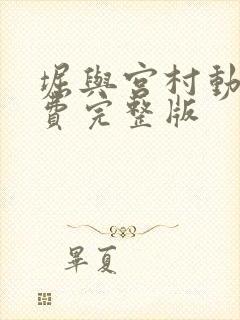 堀與宮村動
費完整版
畢夏